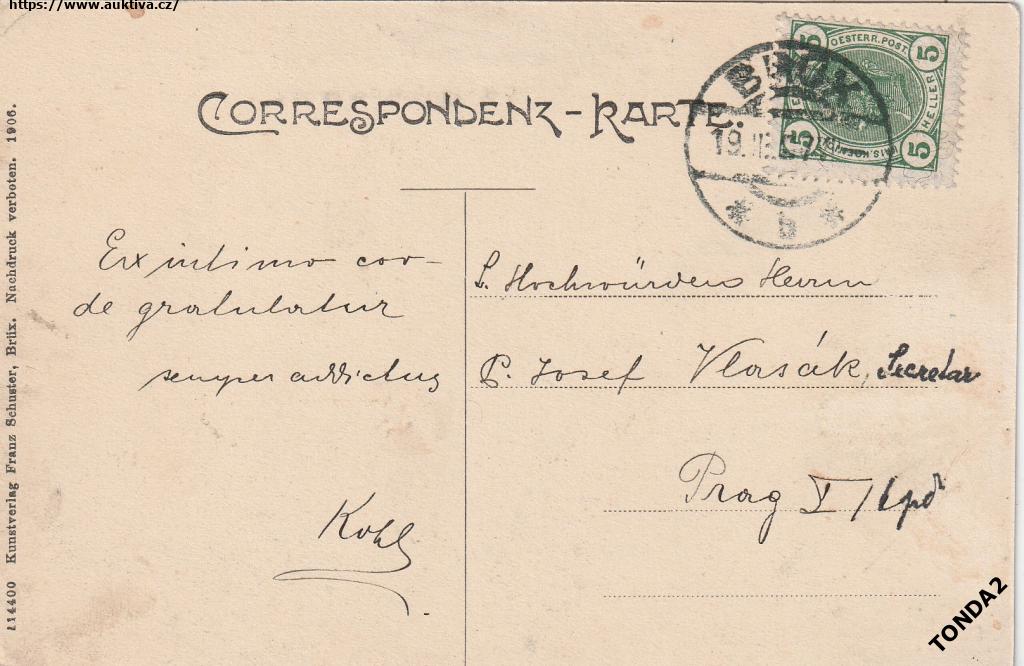 https://www.auktiva.cz/
CORRESPONDENZ-KARTE.
BRÜX
19. III. 07
* b *
OESTERR. POST.
5 5
HELLER
5 5
114400 Kunstverlag Franz Schuster, Brüx. Nachdruck verboten. 1906.
Ex intimo cor-
de gratulatur
semper addictus
Kohl
S. Hochwürdens Herrn
P. Josef Vlasák, Secretär
Prag I/
TONDA2